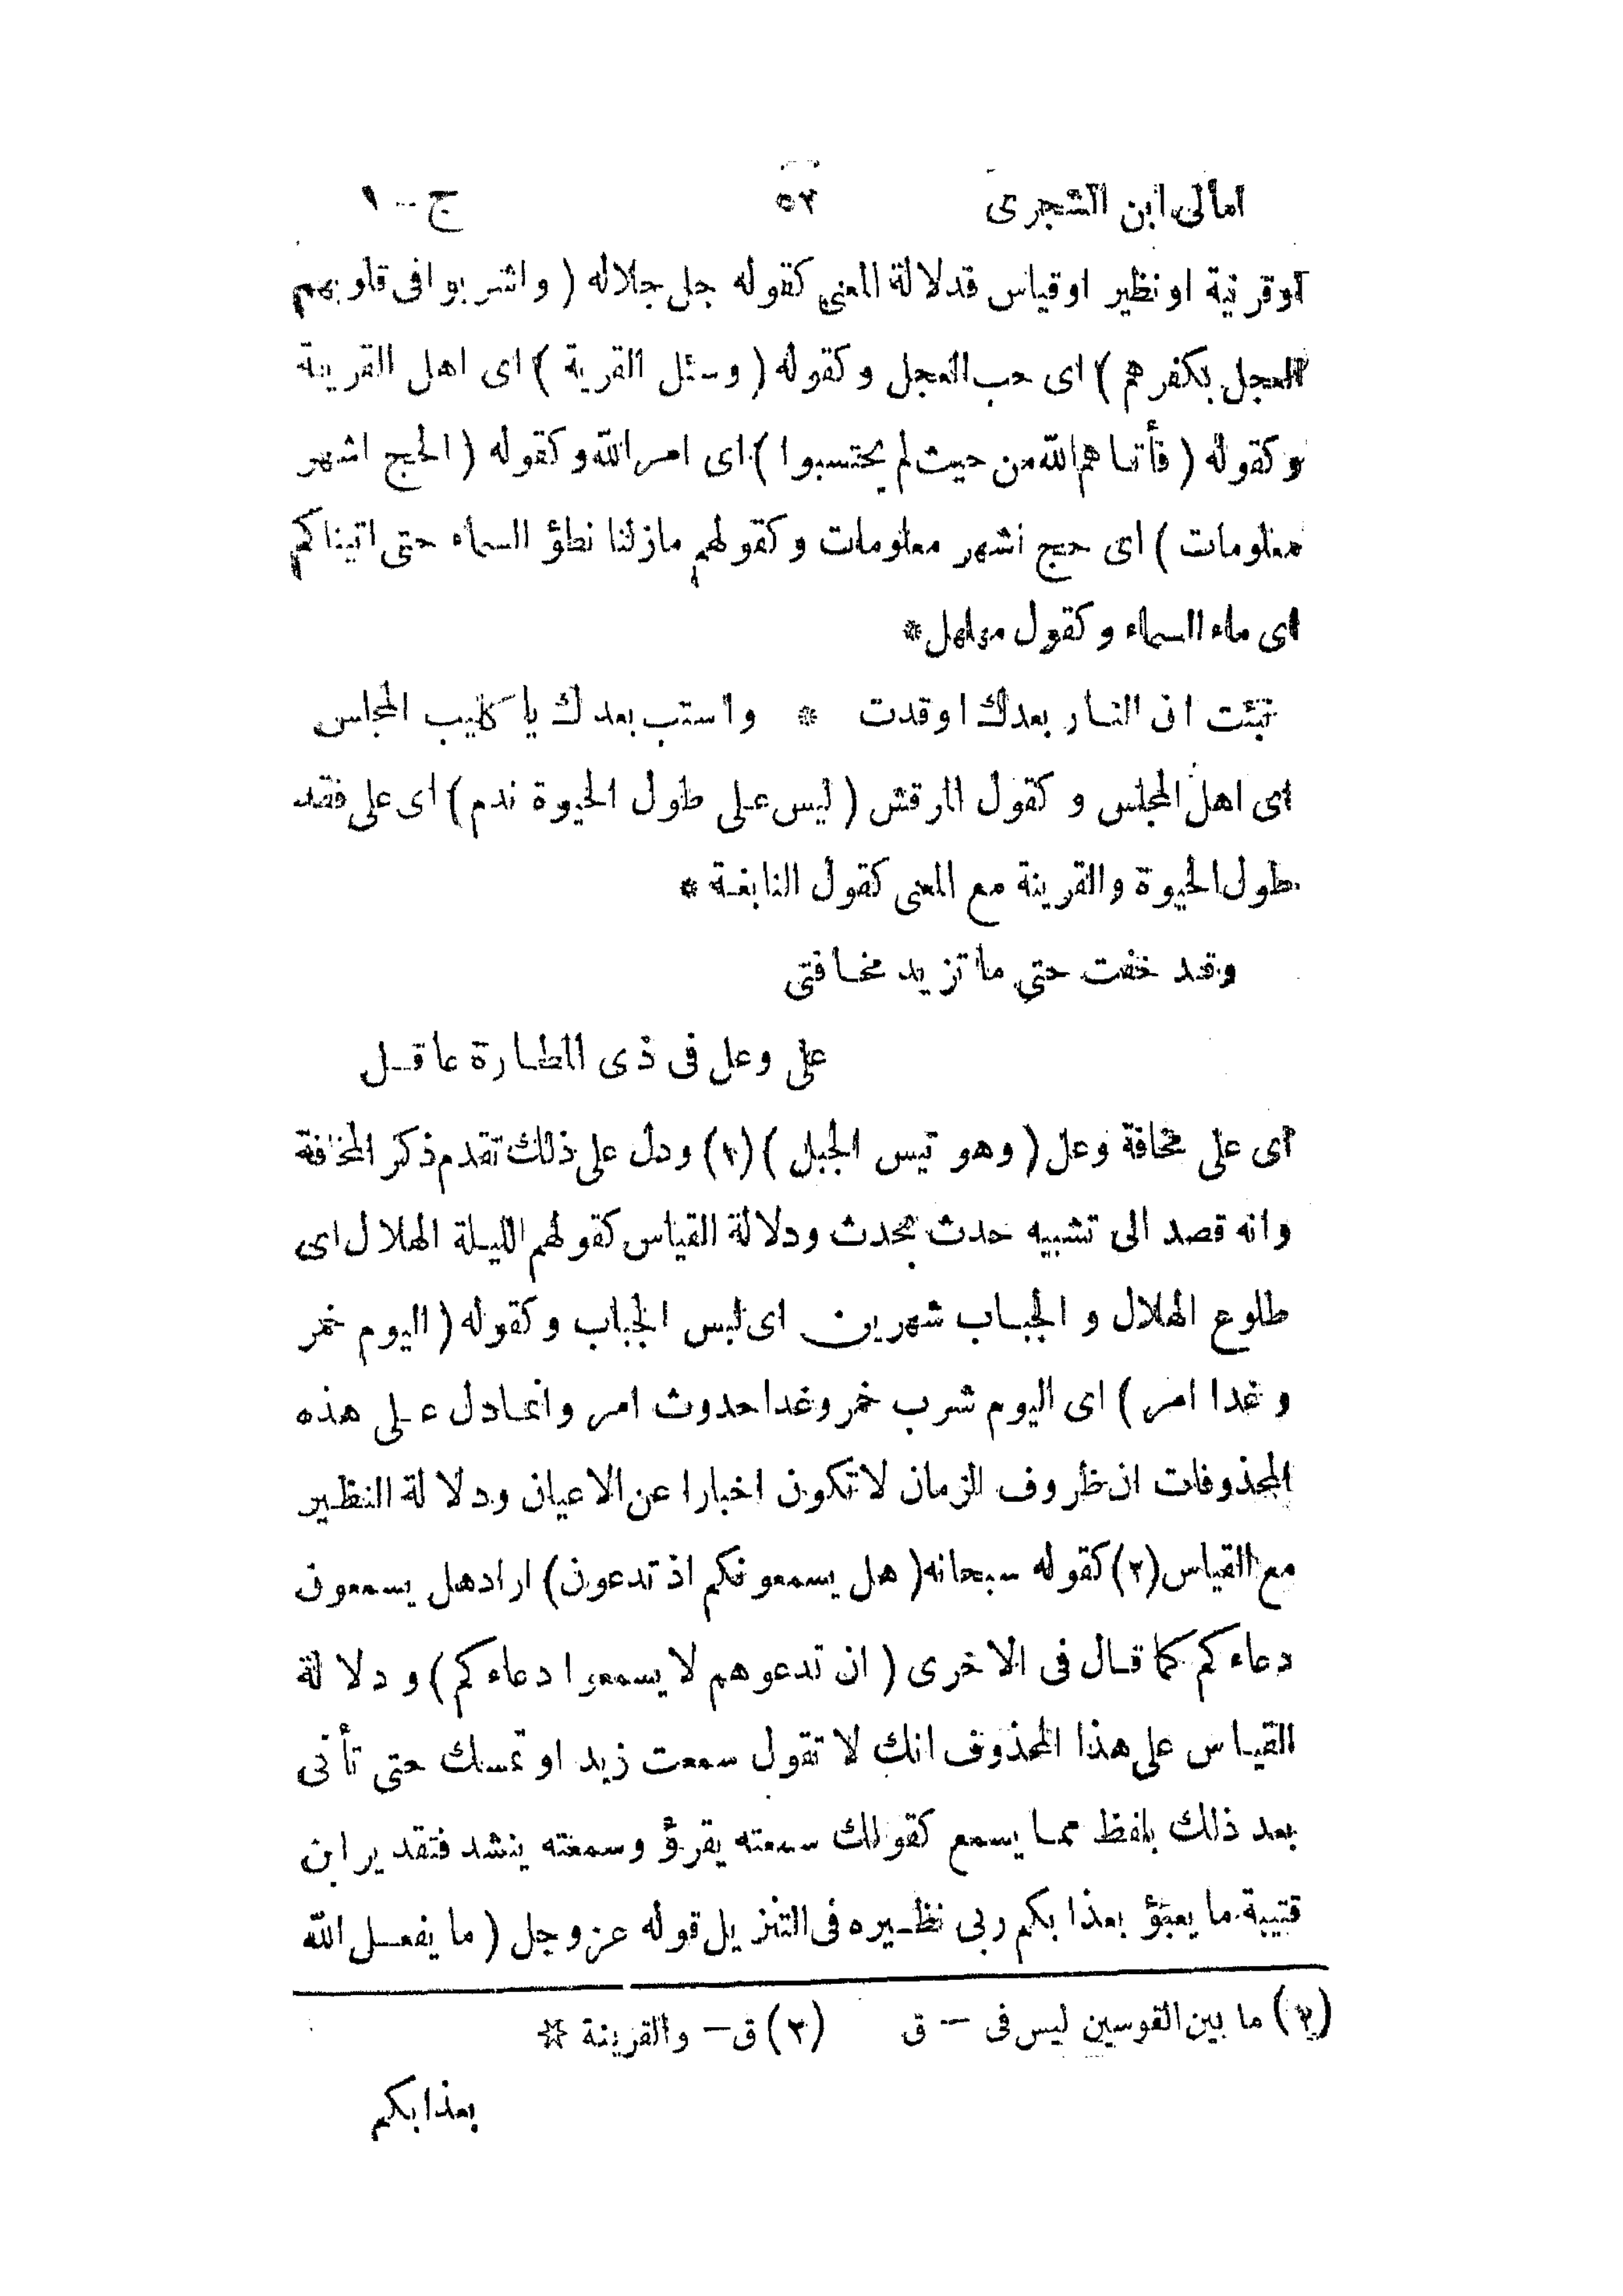 امالى ابن الشجرى ٥٢ ج -- ١
اوقرنية اونظير اوقياس فدلالة المعنى كقوله جل جلاله ( واشربوا فى قلوبهم
العجل بكفرهم ) اى حب العجل وكقوله ( وسئل القرية ) اى اهل القرية
وكقوله ( فأتاهم الله من حيث لم يحتسبوا ) اى امر الله وكقوله ( الحج اشهر
معلومات ) اى حج اشهر معلومات وكقولهم مازلنا نطؤ السماء حتى اتيناكم
اى ماء السماء وكقول مهلهل *
نبئت ان النار بعدك اوقدت * واستب بعدك يا كليب المجلس
اى اهل المجلس وكقول المرقش ( ليس على طول الحيوة ندم ) اى على فقد
طول الحيوة والقرينة مع المعنى كقول النابغة *
وقد خفت حتى ما تزيد مخافتى
على وعل فى ذى المطارة عاقل
اى على مخافة وعل ( وهو تيس الجبل ) (١) ودل على ذلك تقدم ذكر المخافة
وانه قصد الى تشبيه حدث بحدث ودلالة القياس كقولهم الليلة الهلال اى
طلوع الهلال و الجباب شهرين اى لبس الجباب وكقوله ( اليوم خمر
وغدا امر ) اى اليوم شرب خمر وغدا حدوث امر وانما دل على هذه
المحذوفات ان ظروف الزمان لا تكون اخبارا عن الاعيان ودلالة النظير
مع القياس (٢) كقوله سبحانه ( هل يسمعونكم اذ تدعون ) اراد هل يسمعون
دعاءكم كما قال فى الاخرى ( ان تدعوهم لا يسمعوا دعاءكم ) ودلالة
القياس على هذا المحذوف انك لا تقول سمعت زيد او تمسك حتى تأتى
بعد ذلك بلفظ مما يسمع كقولك سمعته يقرؤ وسمعته ينشد فتقدير ابن
قتيبة ما يعبؤ بعذابكم ربى نظيره فى التنزيل قوله عز وجل ( ما يفعل الله
(١) ما بين القوسين ليس فى -- ق (٢) ق -- والقرينة *
بعذابكم